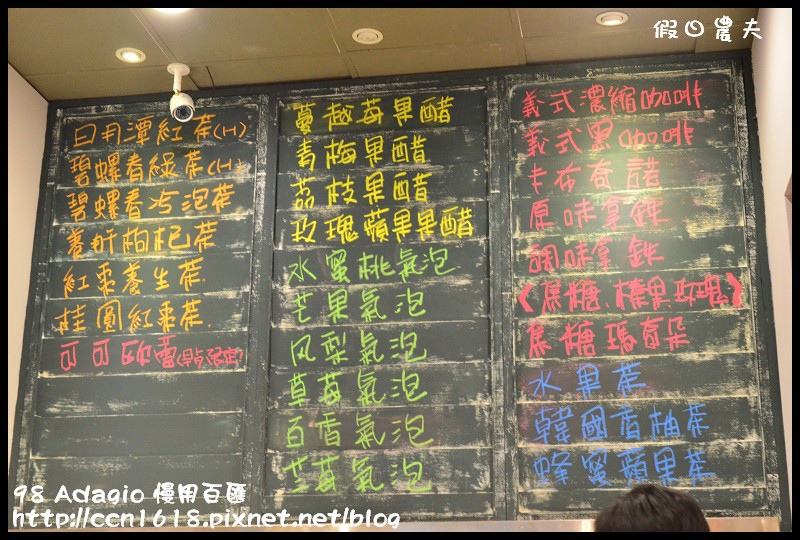 假日農夫
日月潭紅茶(H)
碧螺春綠茶(H)
碧螺春冷泡茶
養肝枸杞茶
紅棗養生茶
桂圓紅棗茶
可可歐蕾
蔓越莓果醋
青梅果醋
荔枝果醋
玫瑰蘋果果醋
水蜜桃氣泡
芒果氣泡
风梨氣泡
草莓氣泡
百香氣泡
氣泡
義式濃縮咖啡
義式黑咖啡
卡布奇諾
原味拿鉄
調味拿鉄
《焦糖、榛果、玫瑰》
焦糖瑪奇朵
水果茶
韓國香柚茶
蜂蜜蘋果茶
98 Adagio 慢用百匯
http://ccn1618.pixnet.net/blog